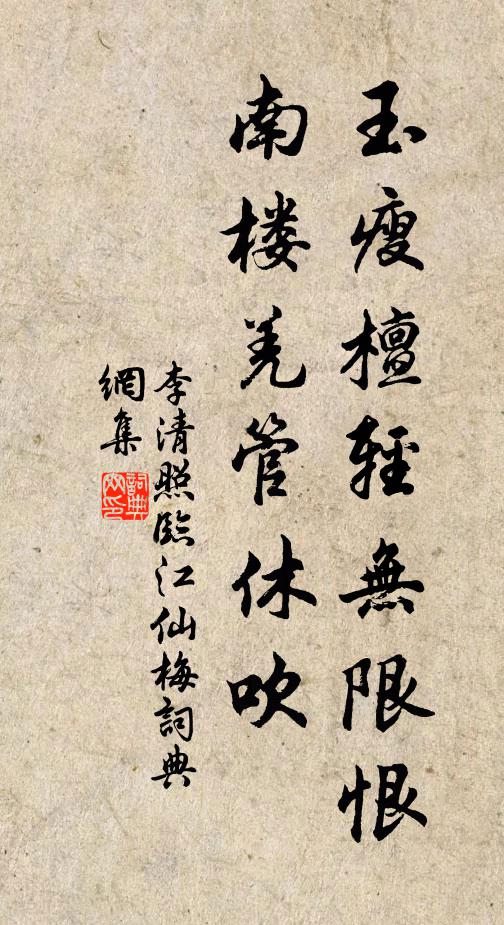 玉瘦檀輕無限恨
南楼羌管休吹
李清照臨江仙梅詞典
網集
詞典
网印